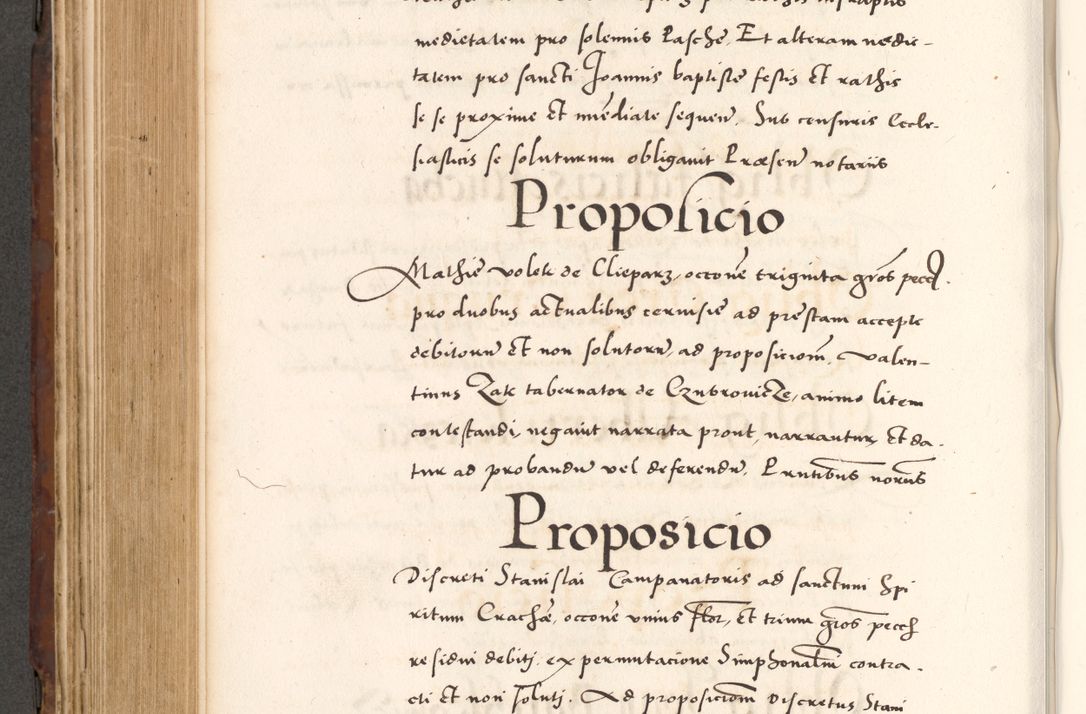 medietatem pro solemnis Pasche, Et alteram medie-
tatem pro sancti Joannis baptiste festis Et rathis
se se proxime Et imediate sequen, Sub censuris Eccle-
siasticis se soluturum obligavit Præsen notariis
Proposicio
Mathie volek de Clieparz, occone triginta gros pecc.
pro duobus actualibus cervisie ad prestam accepte
debitorum Et non solutorum, ad proposiciom, Valen-
tinus Zak tabernator de Czubrovicze, animo litem
contestandi, negavit narrata prout, narrantur Et da-
tur ad probandu vel deferendu, Prntibus norus
Proposicio
Discreti Stanislai Campanatoris ad sanctum Spi
ritum Crachæ, occone unius flor, Et trium gros pecch
residui debiti, ex permutacione Simphonalm contra-
cti Et non soluti, Ad proposiciom Discretus Stani